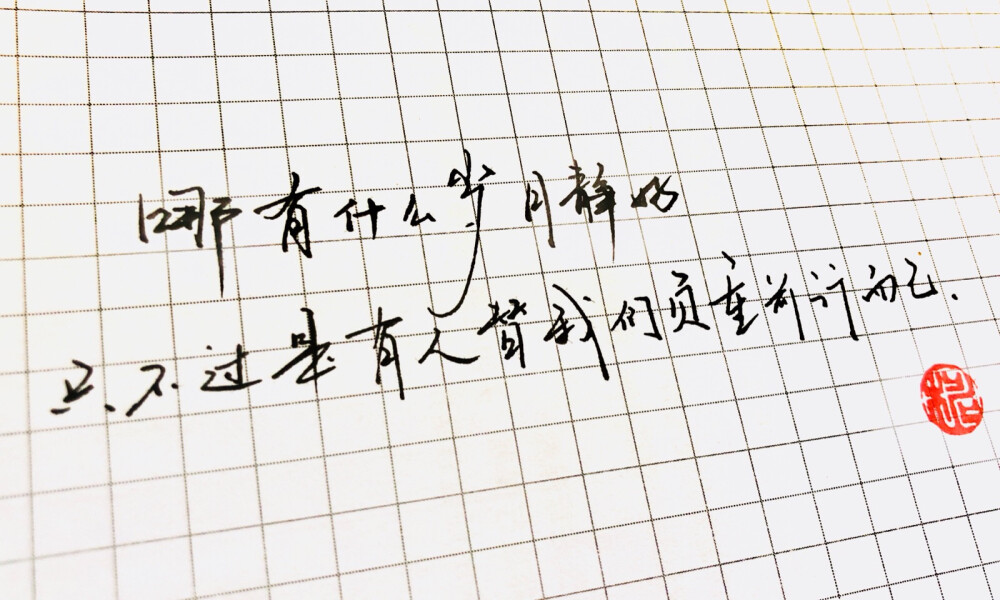 哪有什么岁月静好
只不过是有人替我们负重前行而已.